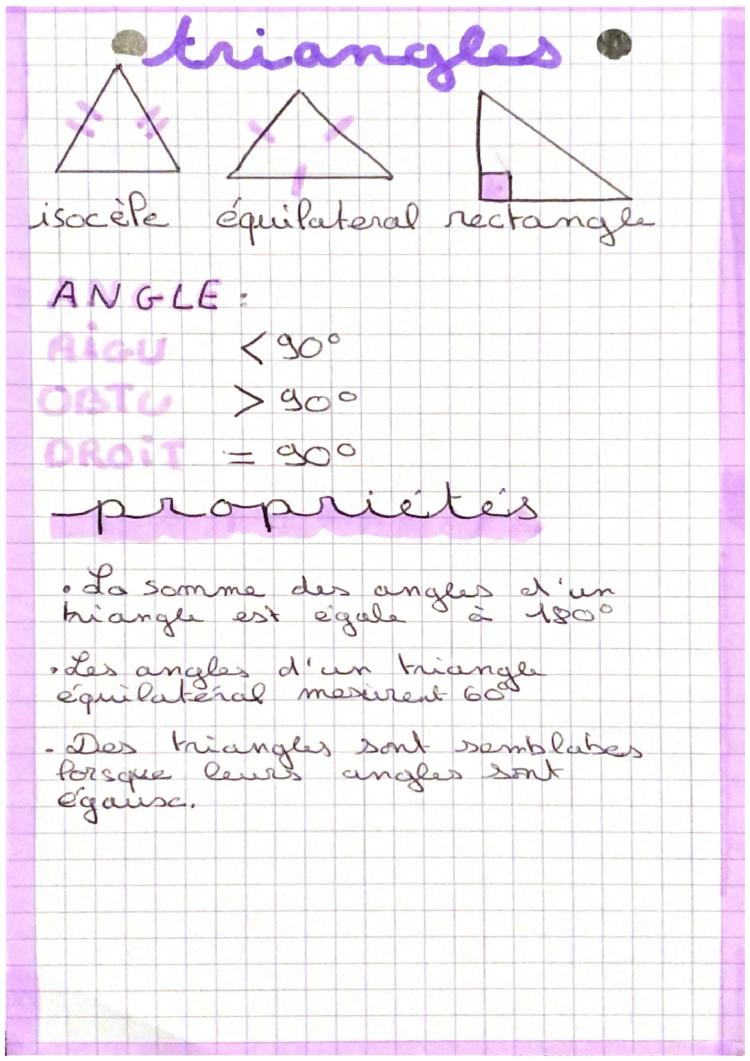 triangles
isocèle équilateral rectangle
ANGLE :
AIGU < 90°
OBTU > 90°
DROIT = 90°
propriétés
• La somme des angles d'un
triangle est égale à 180°
• Les angles d'un triangle
équilatéral mesurent 60°
- Des triangles sont semblabes
lorsque leurs angles sont
égaux.